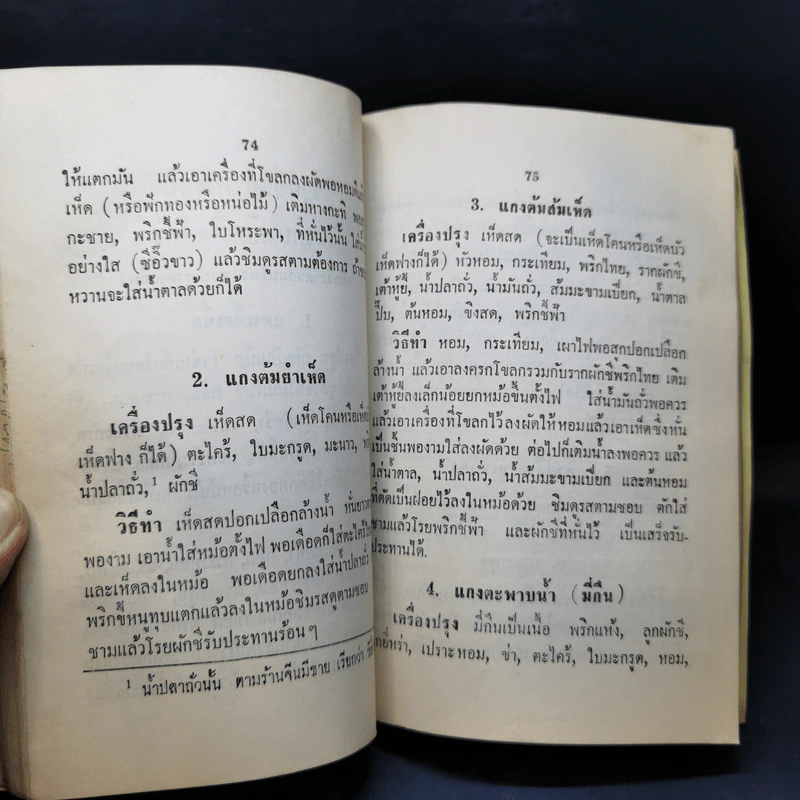 74
ให้แตกมัน แล้วเอาเครื่องที่โขลกลงผัดพอหอม
เห็ด (หรือฟักทองหรือหน่อไม้) เติมหางกะทิ
กะชาย, พริกชี้ฟ้า, ใบโหระพา, ที่หั่นไว้นั้น
อย่างใส (ซีอิ๊วขาว) แล้วชิมดูรสตามต้องการ
หวานจะใส่น้ำตาลด้วยก็ได้
2. แกงต้มยำเห็ด
เครื่องปรุง เห็ดสด (เห็ดโคนหรือเห็ด
เห็ดฟาง ก็ได้) ตะไคร้, ใบมะกรูด, มะนาว,
น้ำปลาถั่ว,¹ ผักชี
วิธีทำ เห็ดสดปอกเปลือกล้างน้ำ หั่นยาว
พองาม เอาน้ำใส่หม้อตั้งไฟ พอเดือดก็ใส่ตะไคร้
และเห็ดลงในหม้อ พอเดือดยกลงใส่น้ำปลาถั่ว
พริกขี้หนูทุบแตกแล้วลงในหม้อชิมรสดูตามชอบ
ชามแล้วโรยผักชีรับประทานร้อน ๆ
¹ น้ำปลาถั่วนั้น ตามร้านจีนมีขาย เรียกว่า
75
3. แกงต้มส้มเห็ด
เครื่องปรุง เห็ดสด (จะเป็นเห็ดโคนหรือเห็ดบัว
เห็ดฟางก็ได้) หัวหอม, กระเทียม, พริกไทย, รากผักชี,
เต้าหู้ยี้, น้ำปลาถั่ว, น้ำมันถั่ว, ส้มมะขามเปียก, น้ำตาล
ปี๊บ, ต้นหอม, ขิงสด, พริกชี้ฟ้า
วิธีทำ หอม, กระเทียม, เผาไฟพอสุกปอกเปลือก
ล้างน้ำ แล้วเอาลงครกโขลกรวมกับรากผักชีพริกไทย เติม
เต้าหู้ยี้ลงเล็กน้อยยกหม้อขึ้นตั้งไฟ ใส่น้ำมันถั่วพอควร
แล้วเอาเครื่องที่โขลกไว้ลงผัดให้หอมแล้วเอาเห็ดซึ่งหั่น
เป็นชิ้นพองามใส่ลงผัดด้วย ต่อไปก็เติมน้ำลงพอควร แล้ว
ใส่น้ำตาล, น้ำปลาถั่ว, น้ำส้มมะขามเปียก และต้นหอม
ที่ตัดเป็นฝอยไว้ลงในหม้อด้วย ชิมดูรสตามชอบ ตักใส่
ชามแล้วโรยพริกชี้ฟ้า และผักชีที่หั่นไว้ เป็นเสร็จรับ-
ประทานได้.
4. แกงตะพาบน้ำ (มี่กึน)
เครื่องปรุง มี่กึนเป็นเนื้อ พริกแห้ง, ลูกผักชี,
ยี่หร่า, เปราะหอม, ข่า, ตะไคร้, ใบมะกรูด, หอม,